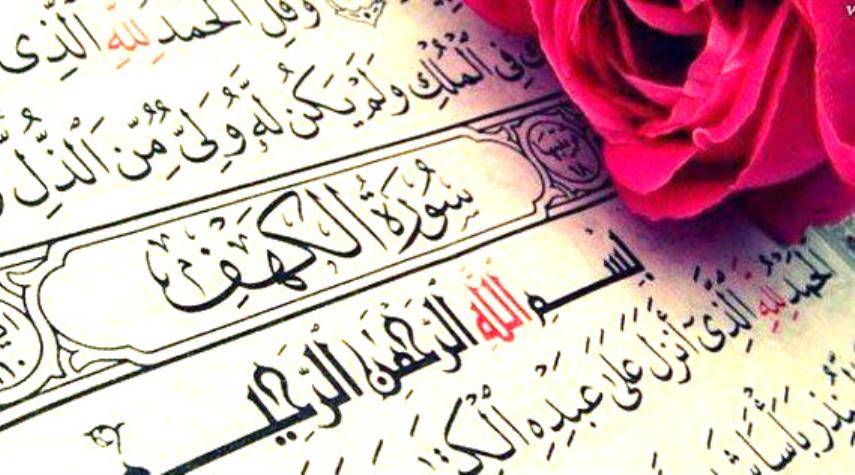 وَقُلِ ٱلْحَمْدُ لِلَّهِ ٱلَّذِى
فِى ٱلْمُلْكِ وَلَمْ يَكُن لَّهُۥ وَلِىٌّ مِّنَ ٱلذُّلِّ
سُورَةُ الكَهْفِ
بِسْمِ اللَّهِ الرَّحْمَٰنِ الرَّحِيمِ
ٱلْحَمْدُ لِلَّهِ ٱلَّذِىٓ أَنزَلَ عَلَىٰ عَبْدِهِ ٱلْكِتَٰبَ
لِّيُنذِرَ بَأْسًا